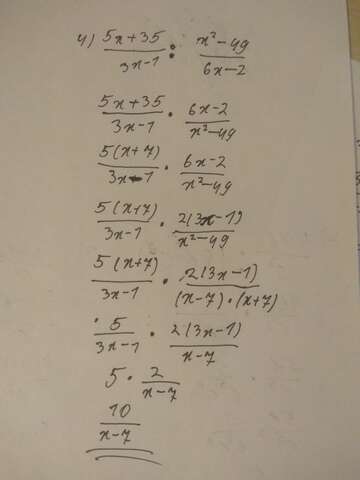 4) (5x+35)/(3x-1) : (x²-49)/(6x-2)
(5x+35)/(3x-1) · (6x-2)/(x²-49)
(5(x+7))/(3x-1) · (6x-2)/(x²-49)
(5(x+7))/(3x-1) · (2(3x-1))/(x²-49)
(5(x+7))/(3x-1) · (2(3x-1))/((x-7)·(x+7))
5/(3x-1) · (2(3x-1))/(x-7)
5 · 2/(x-7)
10/(x-7)